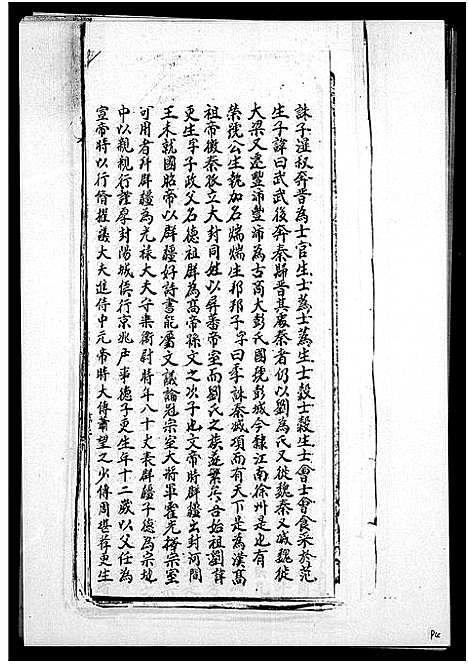 誅子溫叔奔晋為士官生士蒍士蒍生士穀士穀生士會士會食采於范
生子諱曰武武後奔秦歸晋其處秦者仍以劉為氏又從魏秦又滅魏徙
大梁又遷豐沛豐沛為古商大彭氏國號彭城今隸江南徐州是也有
榮號公生執加名煓煓生邦邦子字曰季誅秦滅項而有天下是為漢高
祖帝徵秦孤立大封同姓以屏番帝室而劉氏之族遂繁矣吾始祖劉諱
更生孚子政父名德祖群為高帝孫文之次子也文帝時群疆出封河間
王未就國昭帝以群疆好詩書能屬文議論冠宗室大將軍霍光擇宗室
可用者拜群疆為光祿大夫守樂衛尉時年八十丈衰群疆子德為宗地
中以親親行謹厚封陽城侯行京兆尹事德子更生年十二歲以父任為
宣帝時以行脩擢議大夫進侍中元帝時大傅蕭望之少傅周堪薦更生
Pu